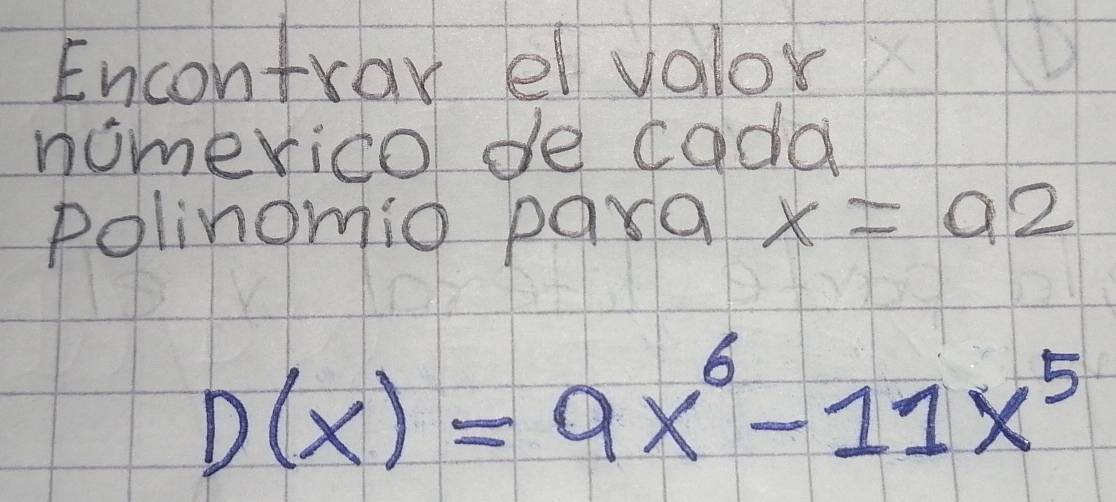 Encontrar el valor
númerico de cada
polinomio para x = a2
D(x) = 9x⁶ - 11x⁵